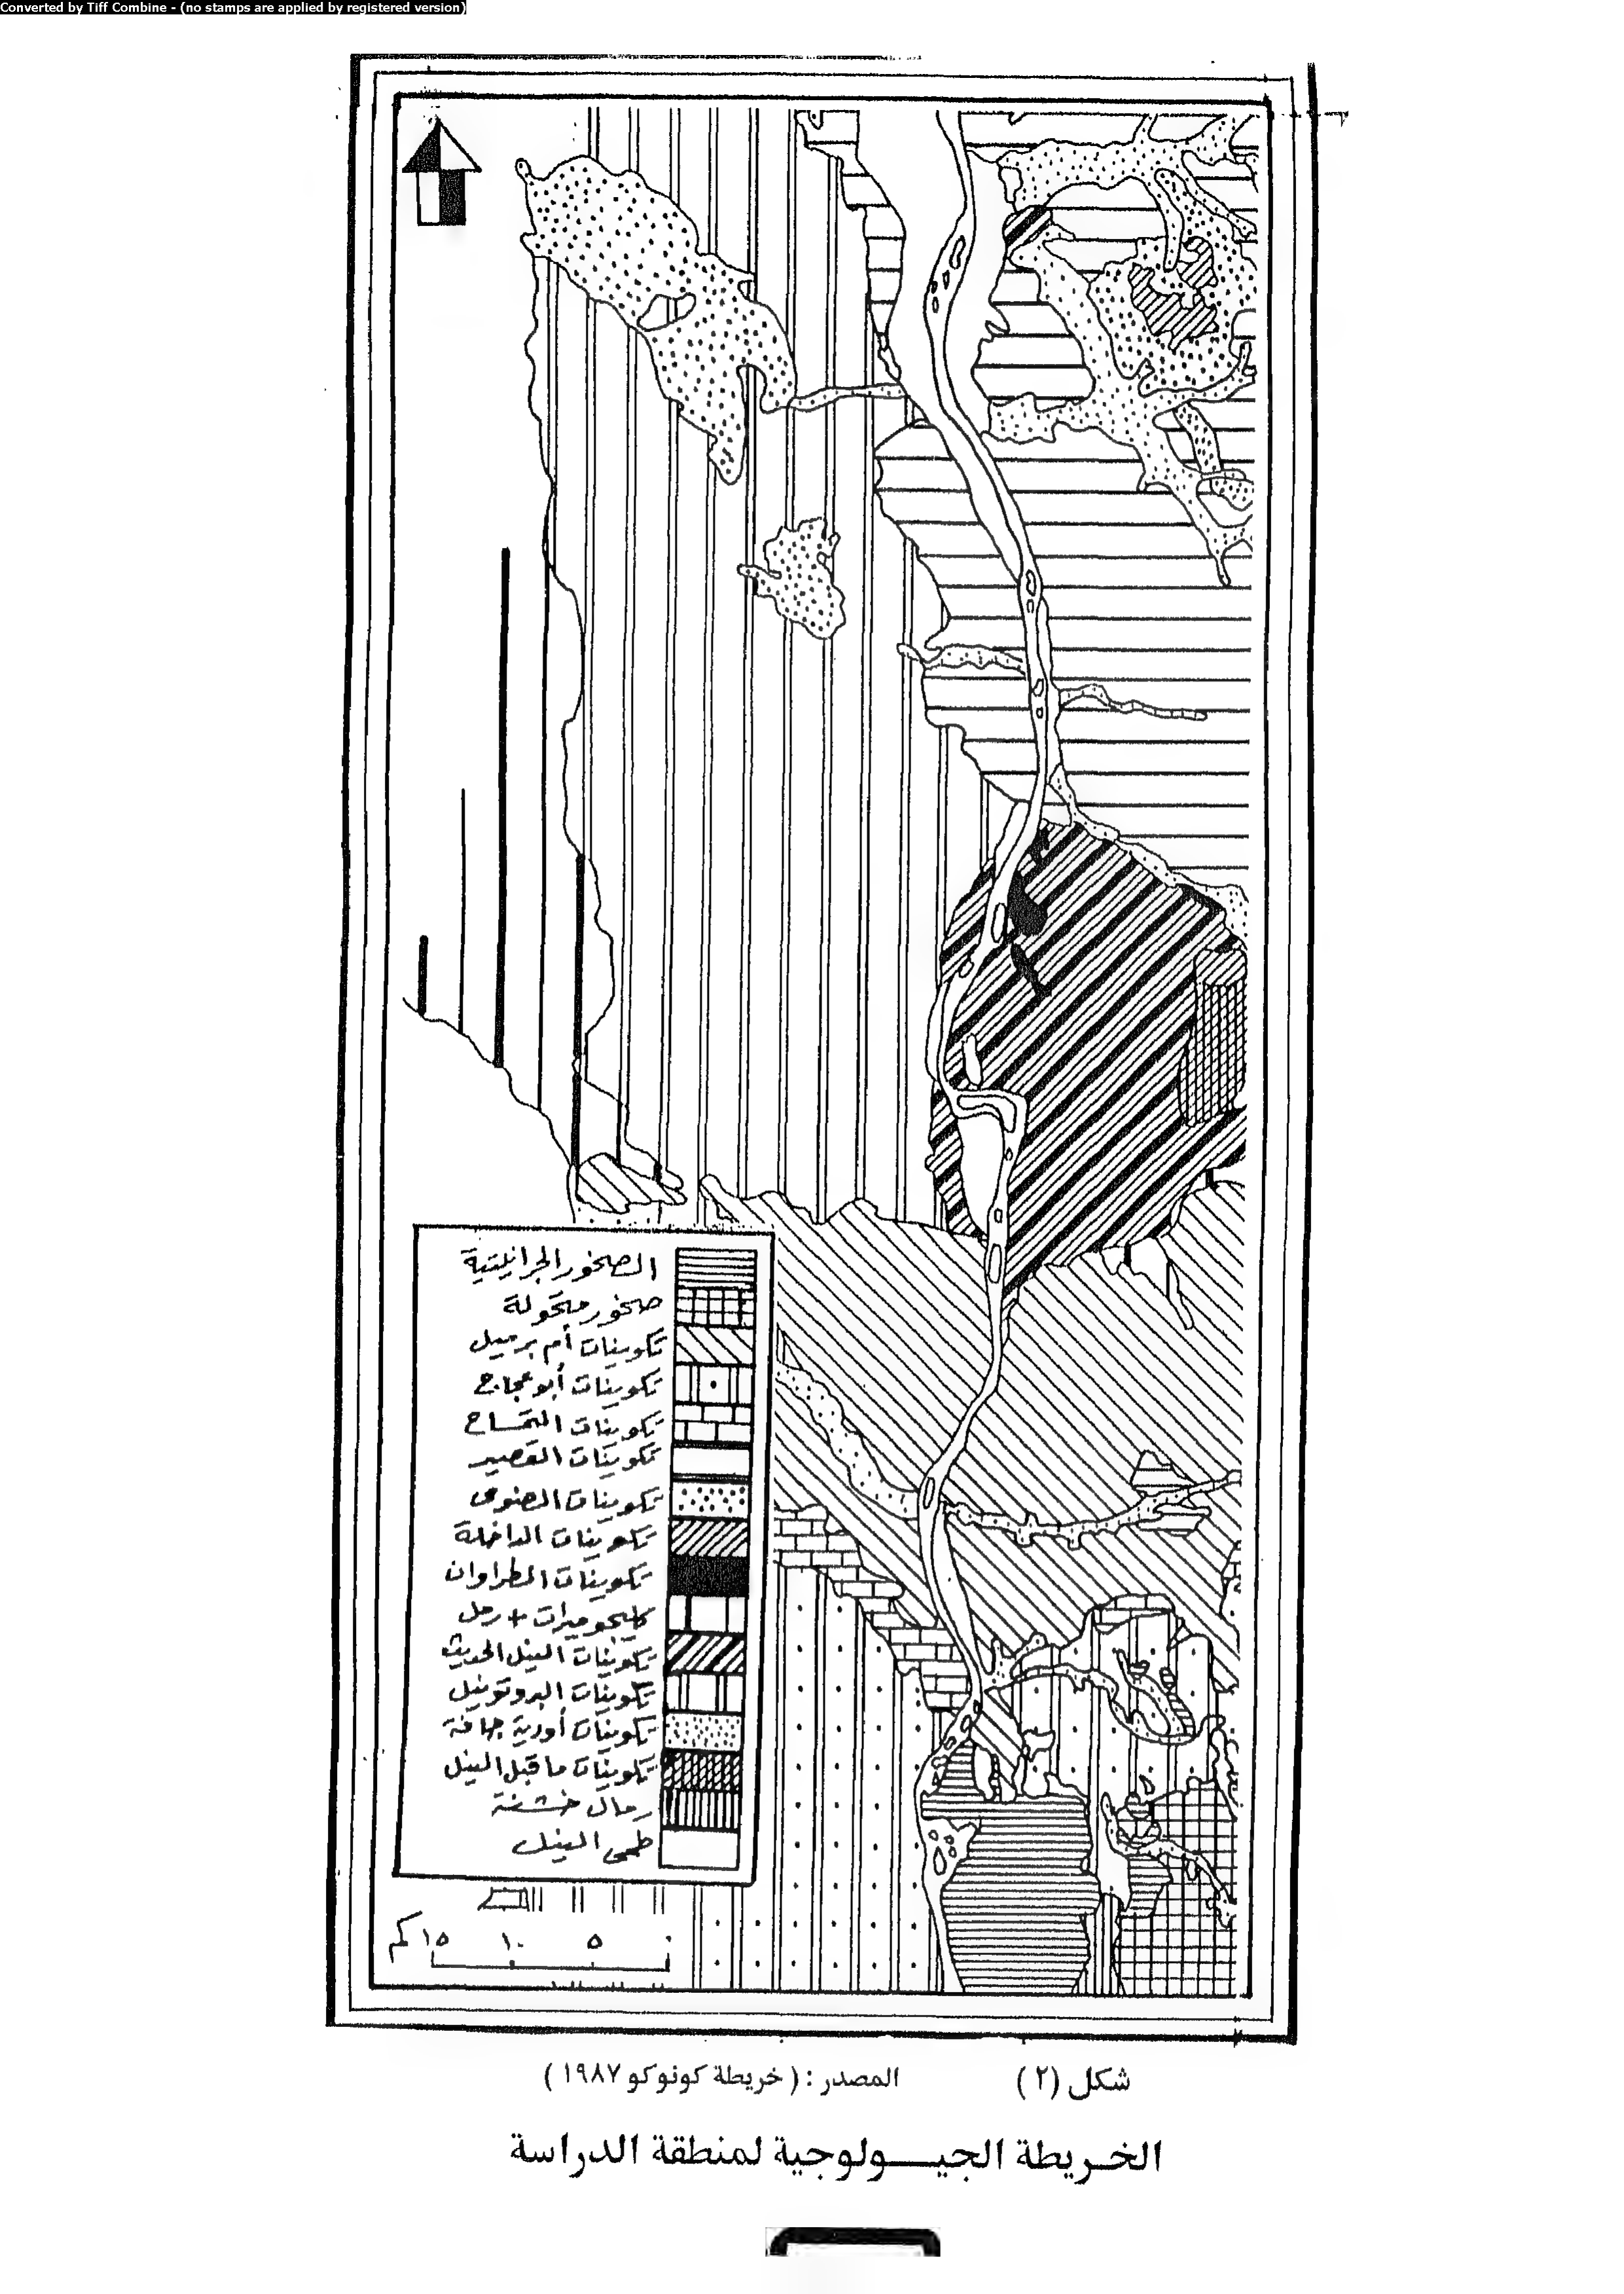 Converted by Tiff Combine - (no stamps are applied by registered version)
الصخور الجرانيتية
صخور متحولة
تكوينات أم برميل
تكوينات أبو عجاج
تكوينات التمساح
تكوينات القصير
تكوينات الضوى
تكوينات الداخلة
تكوينات الطراوان
كلنجوميرات + رمل
تكوينات النيل الحديث
تكوينات البروتونيل
تكوينات أودية جافة
تكوينات ما قبل النيل
رمال خشنة
طمى النيل
٠ ٥ ١٠ ١٥ كم
شكل (٢) المصدر : ( خريطة كونوكو ١٩٨٧ )
الخريطة الجيولوجية لمنطقة الدراسة